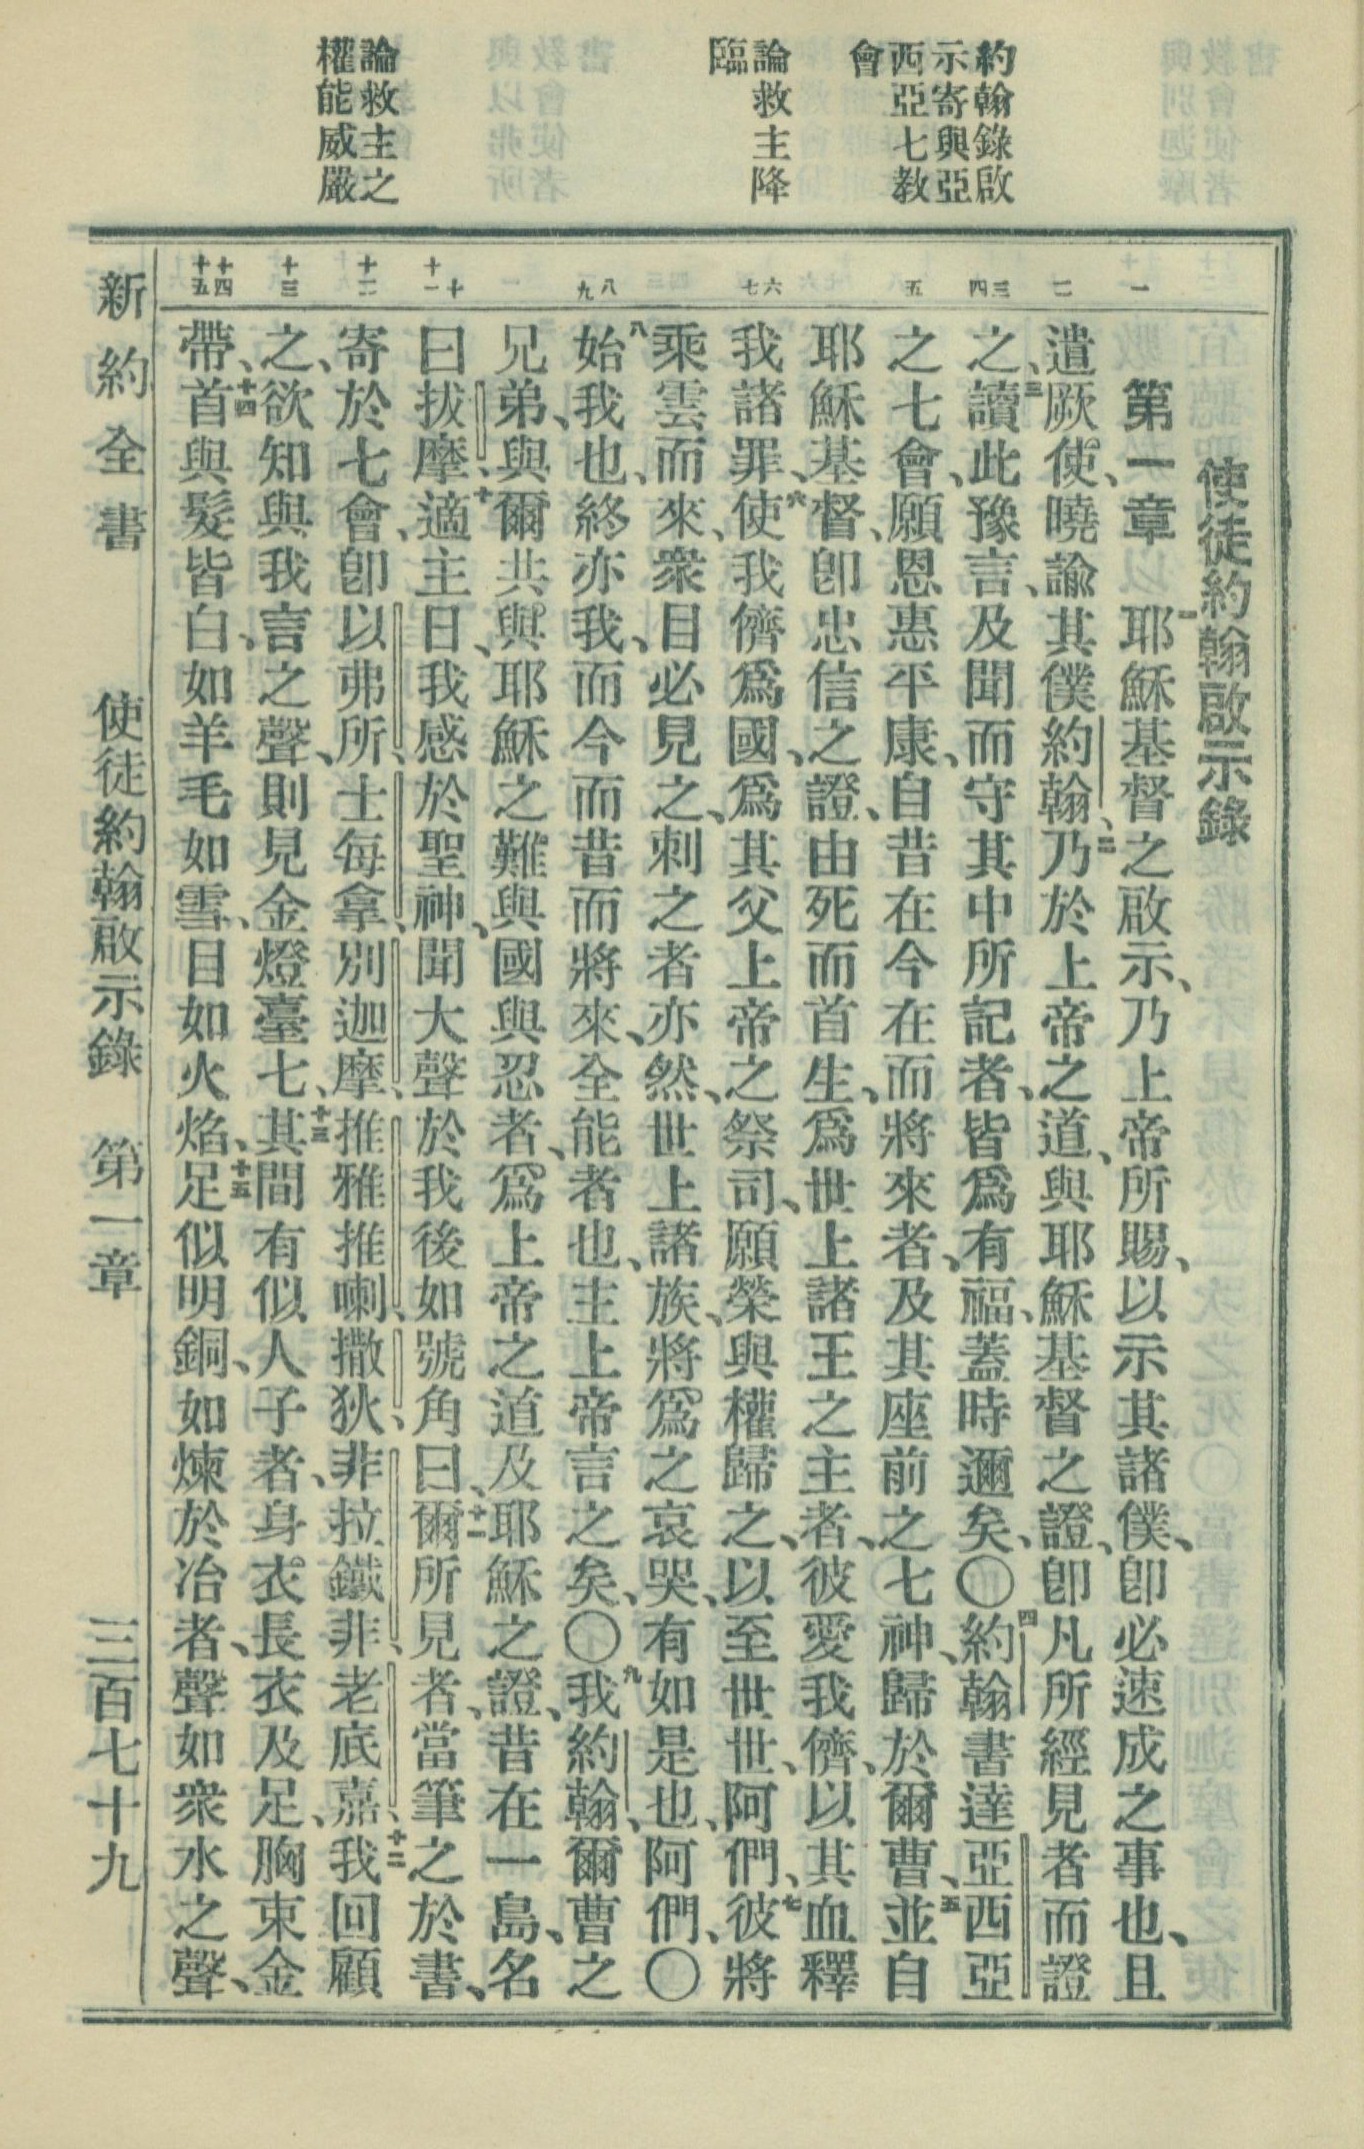 約翰錄啟
示寄與亞
西亞七教
會
論救主降
臨
論救主之
權能威嚴
一
二
三四
五
六七
八九
十十一
十二
十三
十四十五
使徒約翰啟示錄
第一章 一耶穌基督之啟示、乃上帝所賜、以示其諸僕、卽必速成之事也、且
遣厥使、曉諭其僕約翰、二乃於上帝之道、與耶穌基督之證、卽凡所經見者而證
之、三讀此豫言、及聞而守其中所記者、皆爲有福、蓋時邇矣、〇四約翰書達亞西亞
之七會、願恩惠平康、自昔在今在而將來者、及其座前之七神、歸於爾曹、五並自
耶穌基督、卽忠信之證、由死而首生、爲世上諸王之主者、彼愛我儕、以其血釋
我諸罪、六使我儕爲國、爲其父上帝之祭司、願榮與權歸之、以至世世、阿們、七彼將
乘雲而來、衆目必見之、刺之者亦然、世上諸族、將爲之哀哭、有如是也、阿們、〇
八始我也、終亦我、而今而昔而將來、全能者也、主上帝言之矣、〇九我約翰、爾曹之
兄弟、與爾共與耶穌之難與國與忍者、爲上帝之道及耶穌之證、昔在一島、名
曰拔摩、十適主日、我感於聖神、聞大聲於我後如號角曰、十一爾所見者、當筆之於書、
寄於七會、卽以弗所、士每拿、別迦摩、推雅推喇、撒狄、非拉鐵非、老底嘉、十二我回顧
之、欲知與我言之聲、則見金燈臺七、十三其間有似人子者、身衣長衣及足、胸束金
帶、十四首與髮皆白、如羊毛如雪、目如火焰、十五足似明銅、如煉於冶者、聲如衆水之聲、
新約全書 使徒約翰啟示錄 第一章 三百七十九